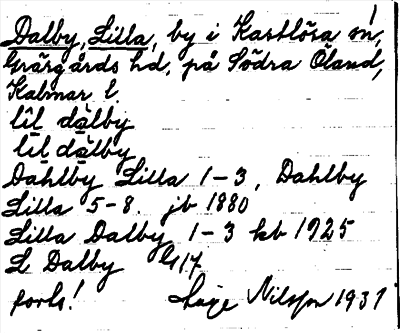 Dalby, Lilla, by i Kastlösa sn,
Gräsgårds hd, på Södra Öland,
Kalmar l.
lîl dàlby
līl dàlby
Dahlby Lilla 1-3, Dahlby
Lilla 5-8. jb 1880
Lilla Dalby 1-3 kb 1925
L Dalby G 17
forts! Nilsson 1937